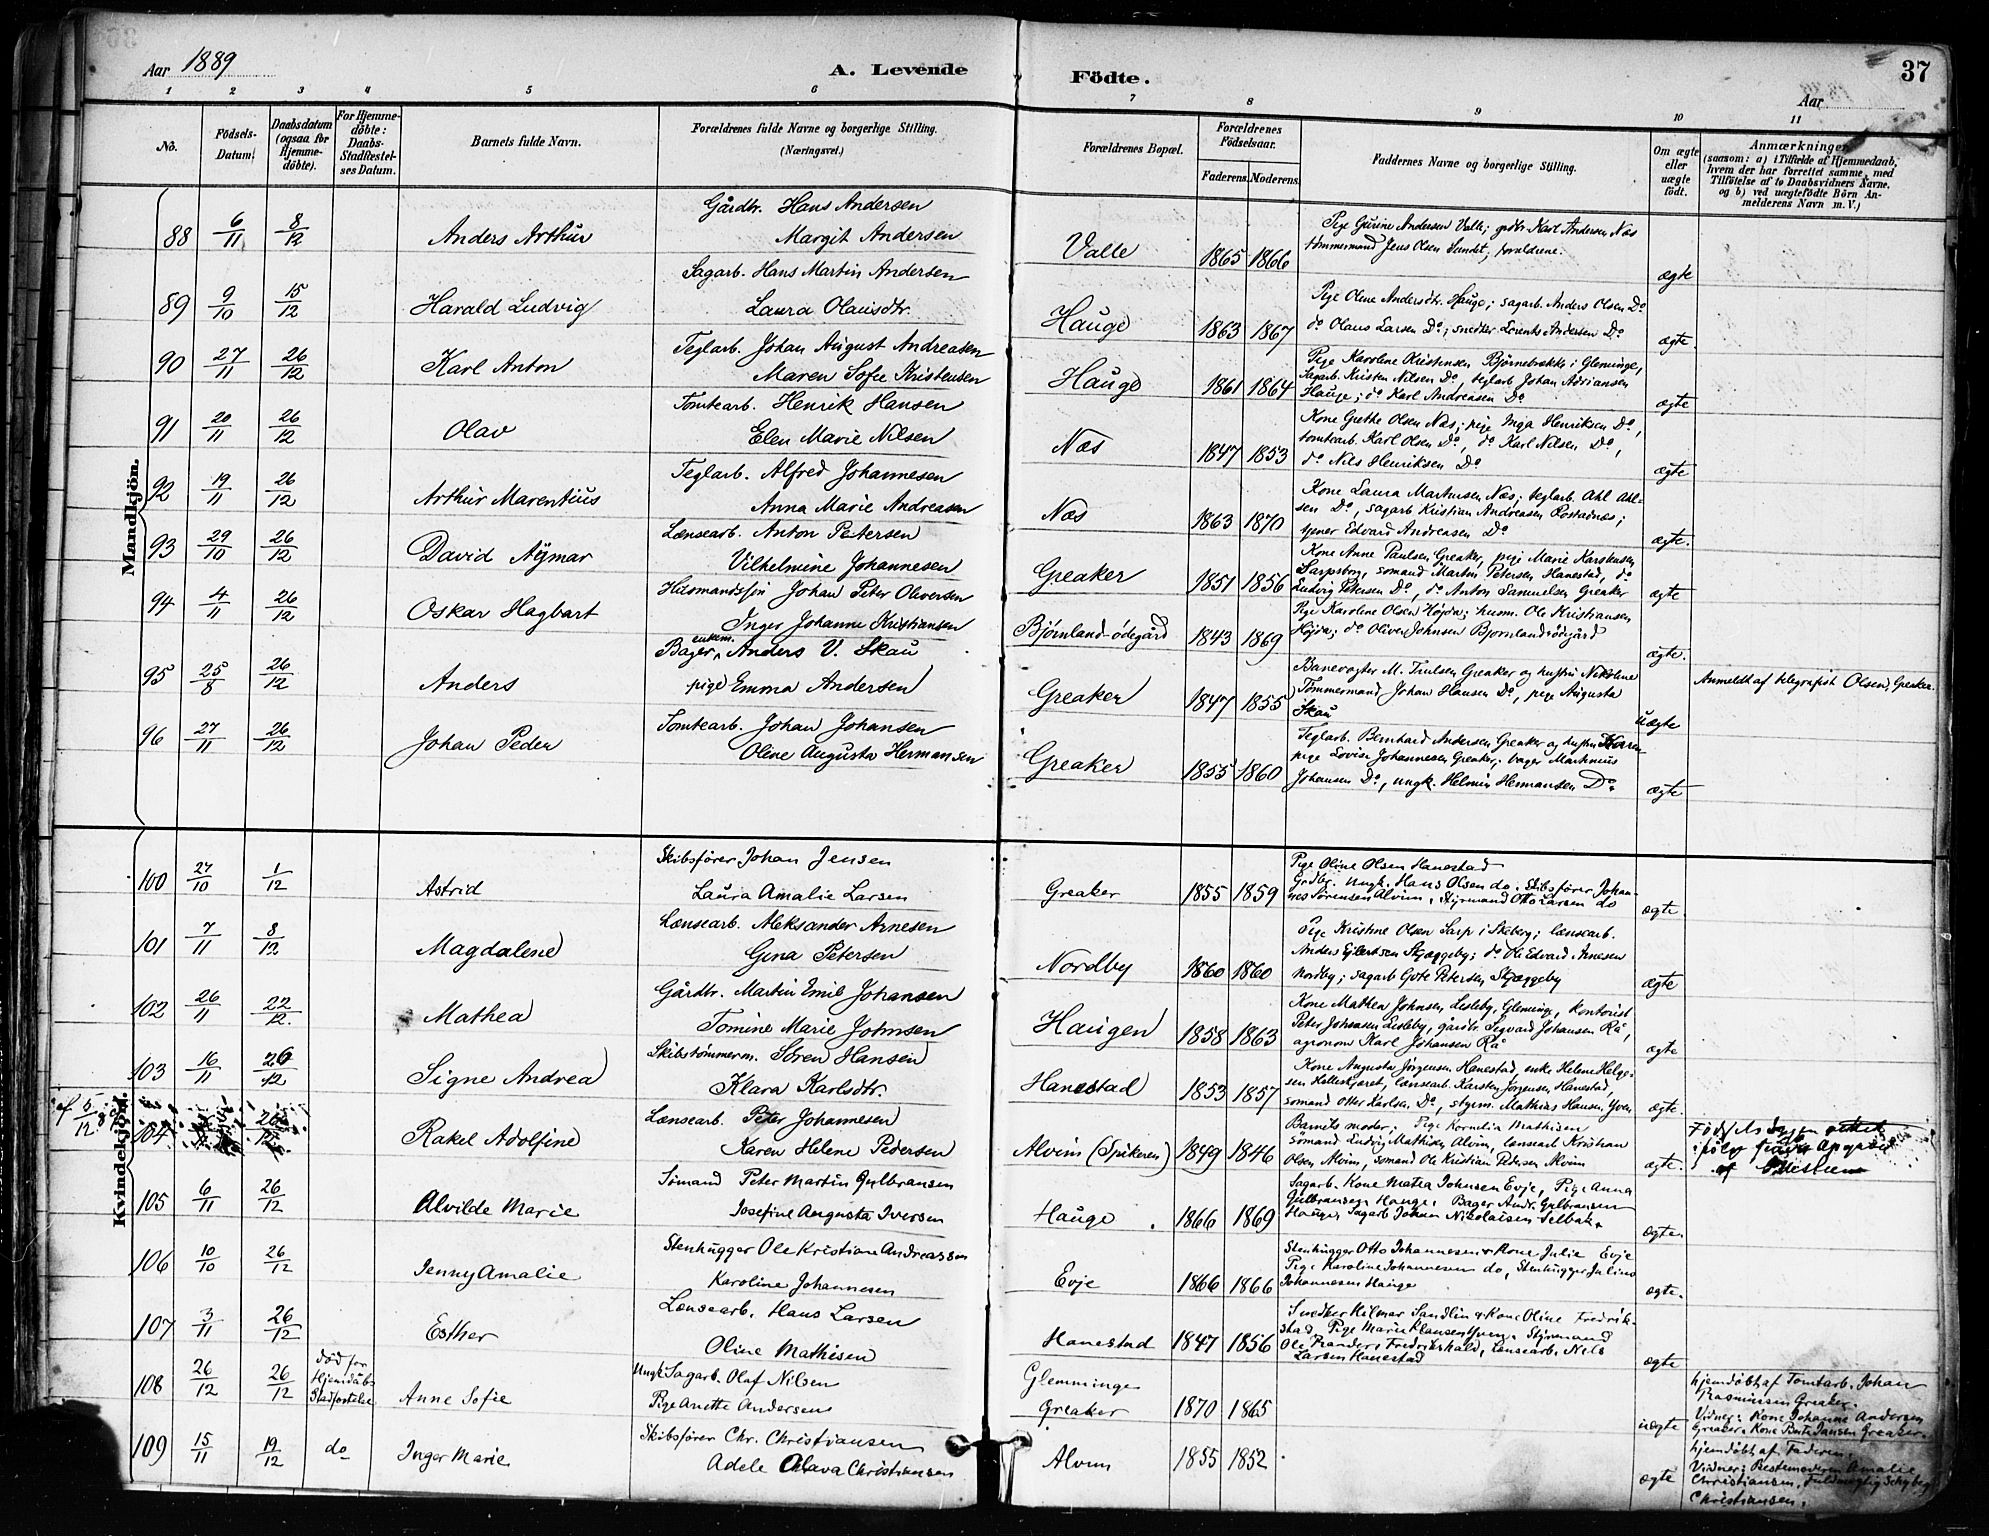 Aar 1889
A. Levende
Födte.
37
Aar
1 2 3 4 5 6 7 8 9 10 11
No.
Födsels-Datum.
Daabsdatum (ogsaa for Hjemmedöbte).
For Hjemmedöbte: Daabs-Stadfæstelses Datum.
Barnets fulde Navn.
Forældrenes fulde Navne og borgerlige Stilling. (Næringsvei.)
Forældrenes Bopæl.
Forældrenes Födselsaar.
Faderens. Moderens.
Faddernes Navne og borgerlige Stilling.
Om ægte eller uægte födt.
Anmærkninger
(saasom: a) i Tilfælde af Hjemmedaab, hvem der har forrettet samme, med Tilföielse af to Daabsvidners Navne, og b) ved uægtefödte Börn Anmelderens Navn m. V.)
Mandkjön.
88 6/11 8/12 Anders Arthur
Gårdbr. Hans Andersen
Margit Andersen
Valle 1865 1866
Pige Gurine Andersen Valle; grdbr. Karl Andersen Næs
tømmermand Jens Olsen Sundet; forældrene.
ægte
89 9/10 15/12 Harald Ludvig
Sagarb. Hans Martin Andersen
Laura Olausdtr.
Hauge 1863 1867
Pige Oline Andersdtr. Hauge; sagarb. Anders Olsen Do
do Olaus Larsen Do; snedker Lorents Andersen Do
ægte
90 27/11 26/12 Karl Anton
Teglarb. Johan August Andreasen
Maren Sofie Kristensen
Hauge 1861 1864
Pige Karoline Kristensen Bjørnebække i Glemminge,
Sagarb. Kristen Nilsen Do, teglarb Johan Adriansen
Hauge; do Karl Andreasen Do
ægte
91 20/11 26/12 Olav
Tomtearb. Henrik Hansen
Elen Marie Nilsen
Næs 1847 1853
Kone Grethe Olsen Næs; pige Inga Henriksen Do,
tomtearb. Karl Olsen Do, do Karl Nilsen Do,
do Nils Henriksen Do
ægte
92 19/11 26/12 Arthur Marentius
Teglarb. Alfred Johannesen
Anna Marie Andreasen
Næs 1863 1870
Kone Laura Martinsen Næs; teglarb. Ahl Ahlsen
Do, sagarb Kristian Andreasen
Edvard Andreasen Do
ægte.
93 29/10 26/12 David Ajmar
Lænsearb. Anton Petersen
Vilhelmine Johannesen
Greaker 1851 1856
Kone Anne Paulsen Greaker, pige Marie
Sarpsborg, sømand Martin Petersen Hanestad, do
Ludvig Petersen Do, do Anton Samuelsen Greaker
ægte
94 4/11 26/12 Oskar Hagbart
Husmandssøn Johan Peter Oliversen
Inger Johanne Kristiansen
Bjørnland-ødegård 1843 1869
Pige Karoline Olsen Højda; husm. Ole Kristiansen
Højda; do Oliver Johnsen Bjørnlandsødegård
ægte.
95 25/8 26/12 Anders
Bager, enkem. Anders V. Skau
pige Emma Andersen
Greaker 1847 1855
Banevogter M. Truelsen Greaker og hustru Nikoline
Tømmermand Johan Hansen Do, pige Augusta
Skau
uægte
Anmeldt af telegrafist Olsen, Greaker.
96 27/11 26/12 Johan Peder
Tomtearb. Johan Johansen
Oline Augusta Hermansen
Greaker 1855 1860
Teglarb. Bernhard Andersen Greaker og hustru Karen
pige Lovise Johannesen Greaker, bager Martinius
Johansen Do, ungk. Helmin Hermansen Do
ægte
Kvindekjön.
100 27/10 1/12 Astrid
Skibsfører Johan Jensen
Laura Amalie Larsen
Greaker 1855 1859
Pige Oline Olsen Hanestad
Grdbr. ungk. Hans Olsen do. Skibsfører Johannes
Sørensen Alvim, Styrmand Otto Larsen do
ægte.
101 7/11 8/12 Magdalene
Lænsearb. Aleksander Arnesen
Gina Petersen
Nordby 1860 1860
Pige Kristine Olsen Sarp i Skeberg; lænsearb.
Anders Ejlertsen Skjæggeby; do Ole Edvard Arnesen
Nordby; sagarb Gote Petersen Skjæggeby
ægte
102 26/11 22/12 Mathea
Gårdbr. Martin Emil Johansen
Tomine Marie Johnsen
Haugen 1858 1863
Kone Mathea Johnsen Lisleby, Gleminge, kontorist
Peter Johnsen Lisleby, gårdbr. Sigvard Johansen Rå,
agronom Karl Johansen Rå
ægte
103 16/11 26/12 Signe Andrea
Skibstømmerm. Søren Hansen
Klara Karlsdtr.
Hanestad 1853 1857
Kone Augusta Jørgensen Hanestad, enke Helene Helgesen
lænsearb. Karsten Jørgensen Hanestad,
sømand Otter Karlsen Do, styrm. Mathias Hansen Yven
ægte.
104 26/12 Rakel Adolfine
Lænsearb Peter Johannesen
Karen Helene Pedersen
Alvim (Spikeren) 1849 1846
Barnets moder; Pige Kornelia Mathisen
sømand Ludvig Mathisen Alvim, lænsearb Kristian
Olsen Alvim, sømand Ole Kristian Pedersen Alvim
ægte
105 6/11 26/12 Alvilde Marie
Sømand Peter Martin Gulbransen
Josefine Augusta Iversen
Hauge. 1866 1869
Sagarb. Kone Matea Johnsen Evje, Pige Anna
Gulbransen Hauge, Bager Andr. Gulbransen
Hauge, Sagarb Johan Nikolaisen Selbak.
ægte
106 10/10 26/12 Jenny Amalie
Stenhugger Ole Kristian Andreassen
Karoline Johannesen
Evje 1866 1866
Stenhugger Otto Johannesen & Kone Julie Evje
Pige Karoline Johannesen do, Stenhugger Julius
Johannesen Hauge
ægte.
107 3/11 26/12 Esther
Lænsearb. Hans Larsen
Oline Mathisen
Hanestad 1847 1856
Snedker Hilmar Sandlin & Kone Oline Fredrikstad,
Pige Marie Klausen Yven. Styrmand
Ole Fredrikshald, Lænsearb. Nils
Larsen Hanestad
ægte
108 26/12 26/12 død før Hjemdåbs Stadfæstelse Anne Sofie
Ungk. Sagarb. Olaf Nilsen
Pige Anette Andersen
Glemminge
Greaker 1870 1865
uægte
hjemdøbt af Tomtarb. Johan
Rasmussen Greaker.
Vidner: Kone Johanne Andersen
Greaker. Kone Berte Jansen Greaker.
109 15/11 19/12 do Inger Marie
Skibsfører Chr. Christiansen
Adele Olava Christiansen
Alvim 1855 1852
ægte
hjemdøbt af Faderen.
Vidner: Bestemoderen Amalie
Christiansen, Fuldmægtig
Christiansen.